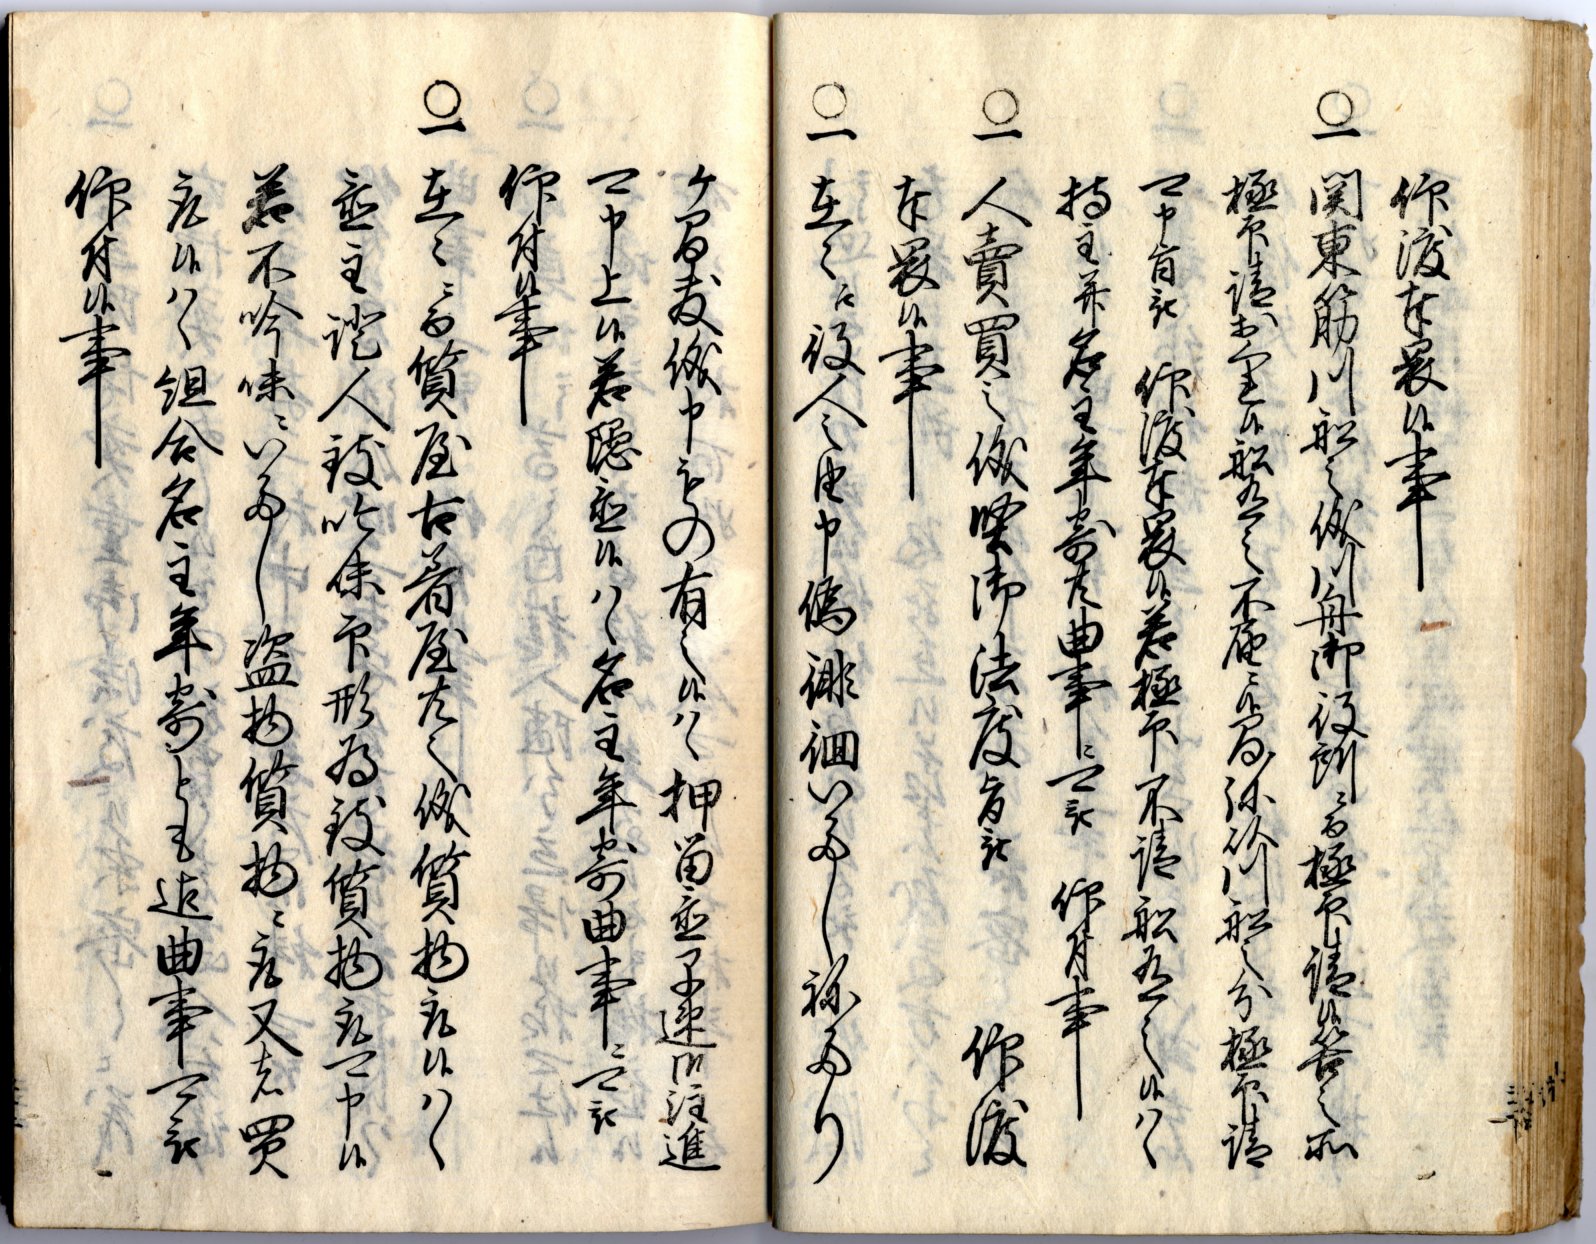 仰渡奉畏候事
〇一 関東筋川船之儀川舟御役所ニ而極印請候筈之所
極印請不申候船有之不届ニ候間弥以川船之分極印請
可申旨被 仰渡奉畏候若極印不請船有之候ハヽ
持主并名主年寄共曲事ニ可被 仰付事
〇一 人賣買之儀堅御法度旨被 仰渡
奉畏候事
〇一 在々江役人之由申偽徘徊いたしねたり
ケ間敷儀申もの有之候ハヽ押留置早速御注進
可申上候若隠置候ハヽ名主年寄曲事ニ可被
仰付候事
〇一 在々ニ而質屋古着屋共之儀質物取候ハヽ
置主證人致吟味印形為致質物取可申候
若不吟味ニいたし盗物質物ニ取又者買
取候ハヽ組合名主年寄とも迄曲事可被
仰付候事